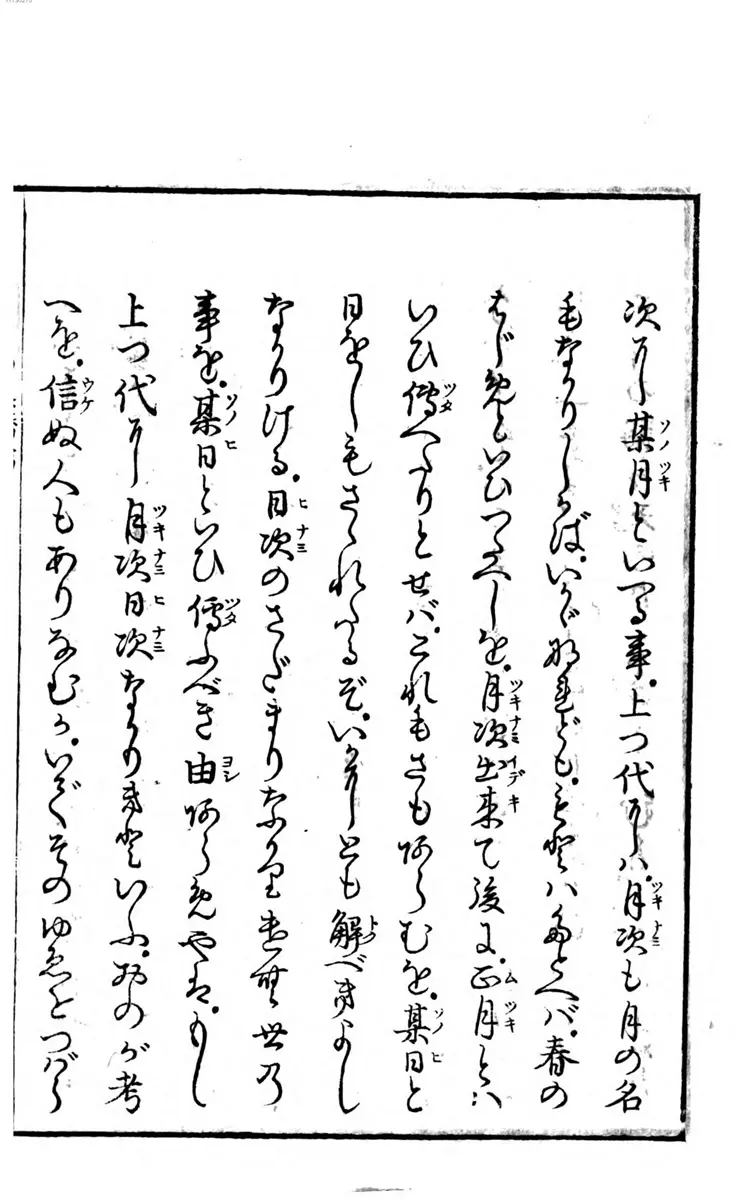 次に某月といへる事、上つ代には、月次も月の名
もなかりしかば、いかゞなれども、もとはたとへば、春の
はじめといひつたへしを、月次出来て後に、正月とは
いひ傳へたりとせば、これもさもあらむを、某日と
日をしもさゝれたるぞ、いかにとも解べきよし
なかりける、日次のさだまりなかりけむ世の
事を、某日といひ傳ふべき由あらめやは、もし
上つ代に月次日次なかりきといふ、おのが考
へを、信ぬ人もありなむか、いで〳〵そのゆゑをつばら